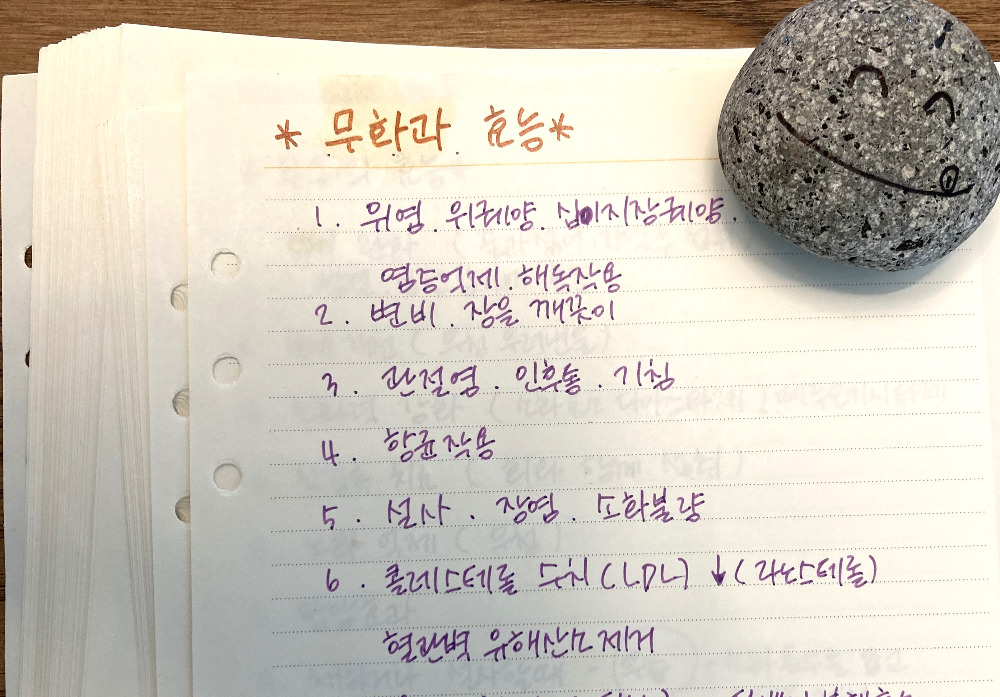 * 무화과 효능 *
1. 위염. 위궤양. 십이지장궤양.
염증억제. 해독작용
2. 변비. 장을 깨끗이
3. 관절염. 인후통. 기침
4. 항균작용
5. 설사. 장염. 소화불량
6. 콜레스테롤 수치(LDL) ↓(라노스테롤)
혈관벽 유해산소제거